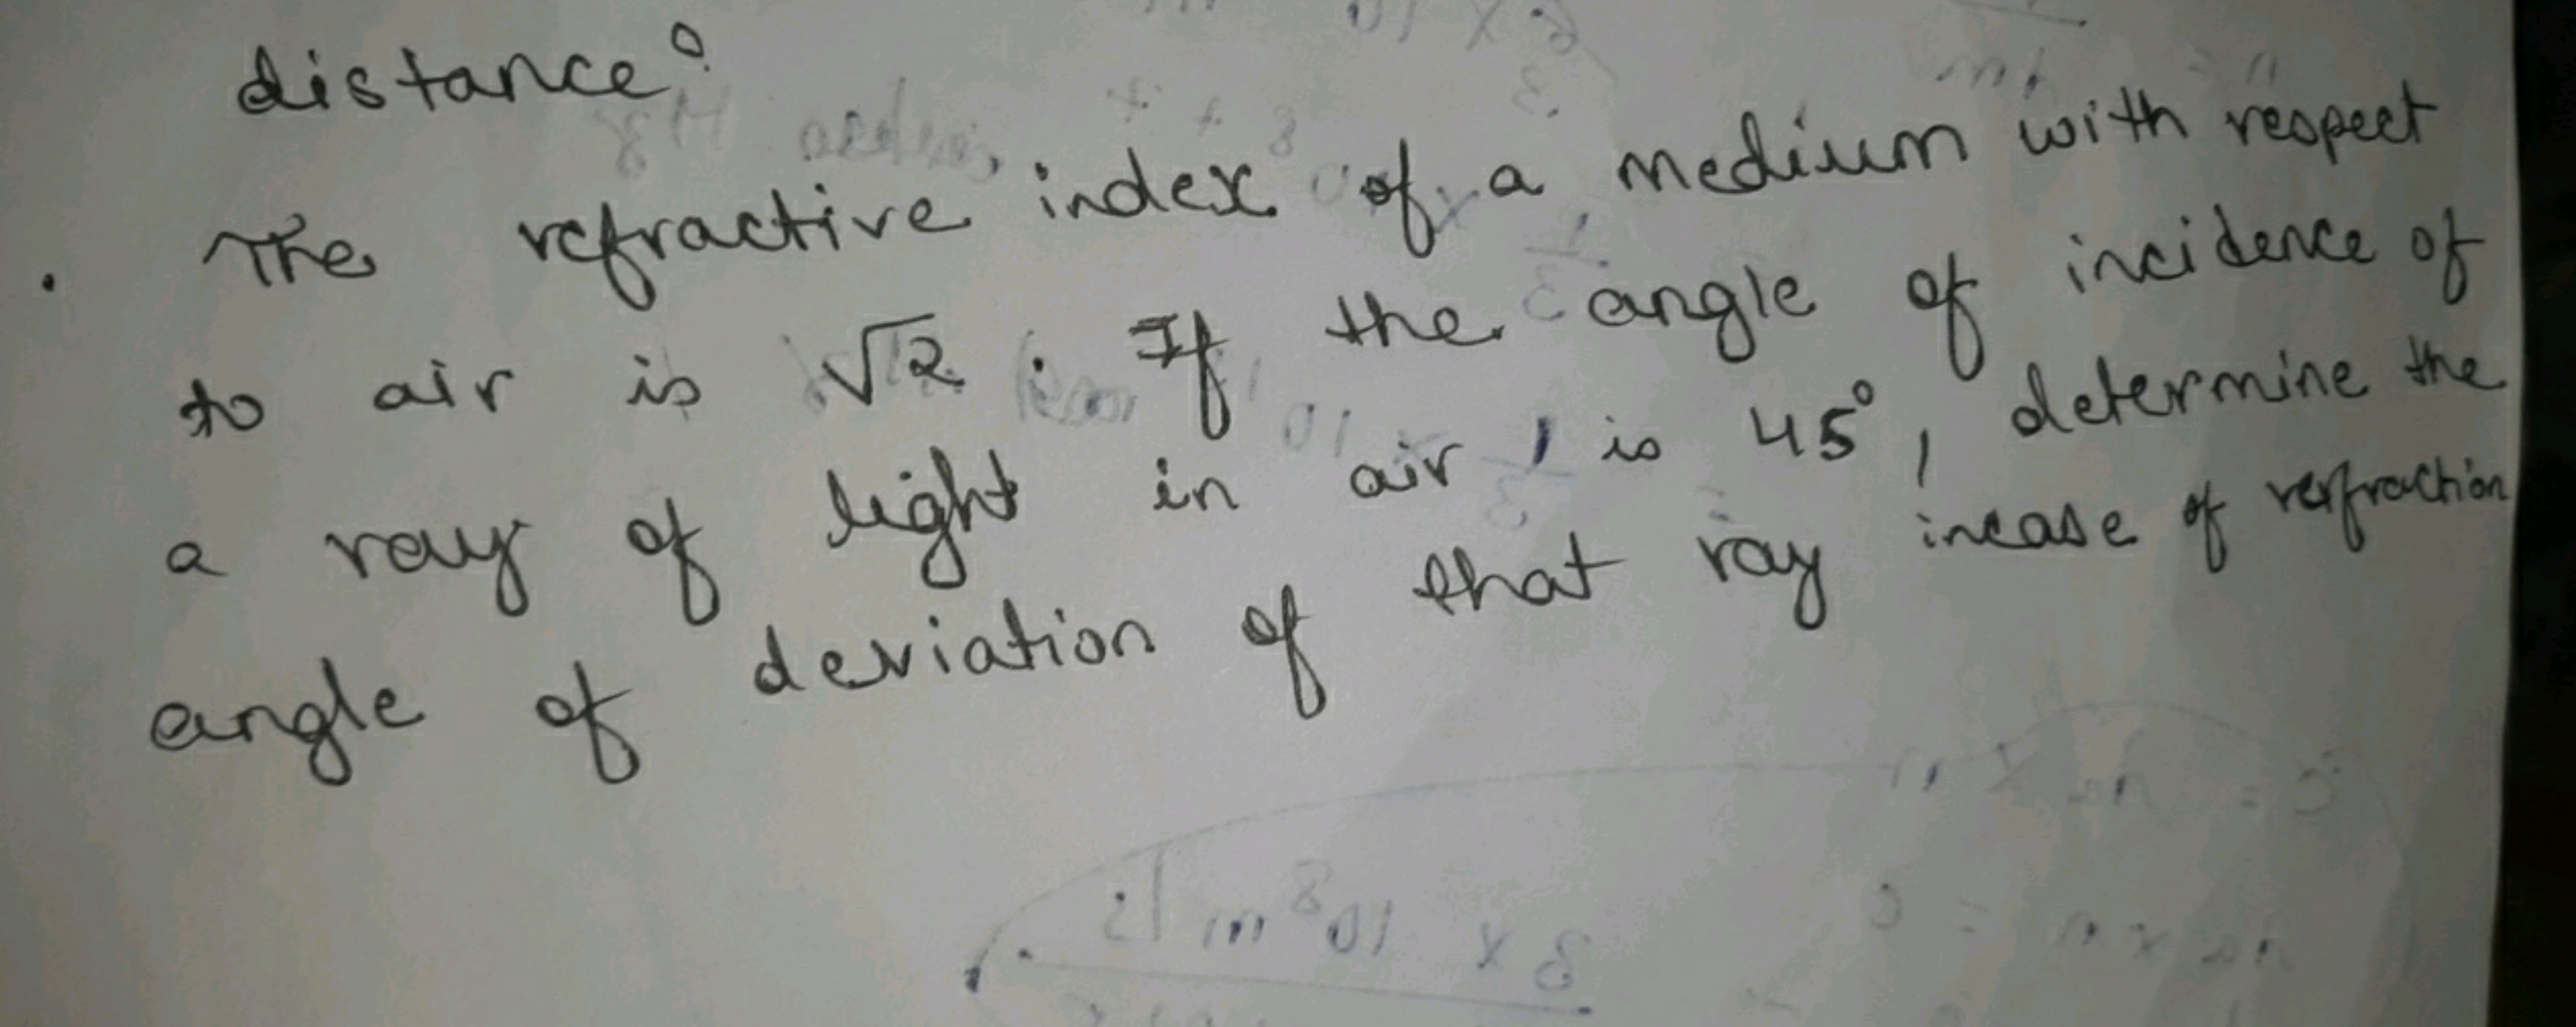 distance?
The refractive index of a medium with respect
to air is √2. If the angle of incidence of
a ray of light in air, is 45°, determine the
angle of deviation of that ray incase of rerfraction